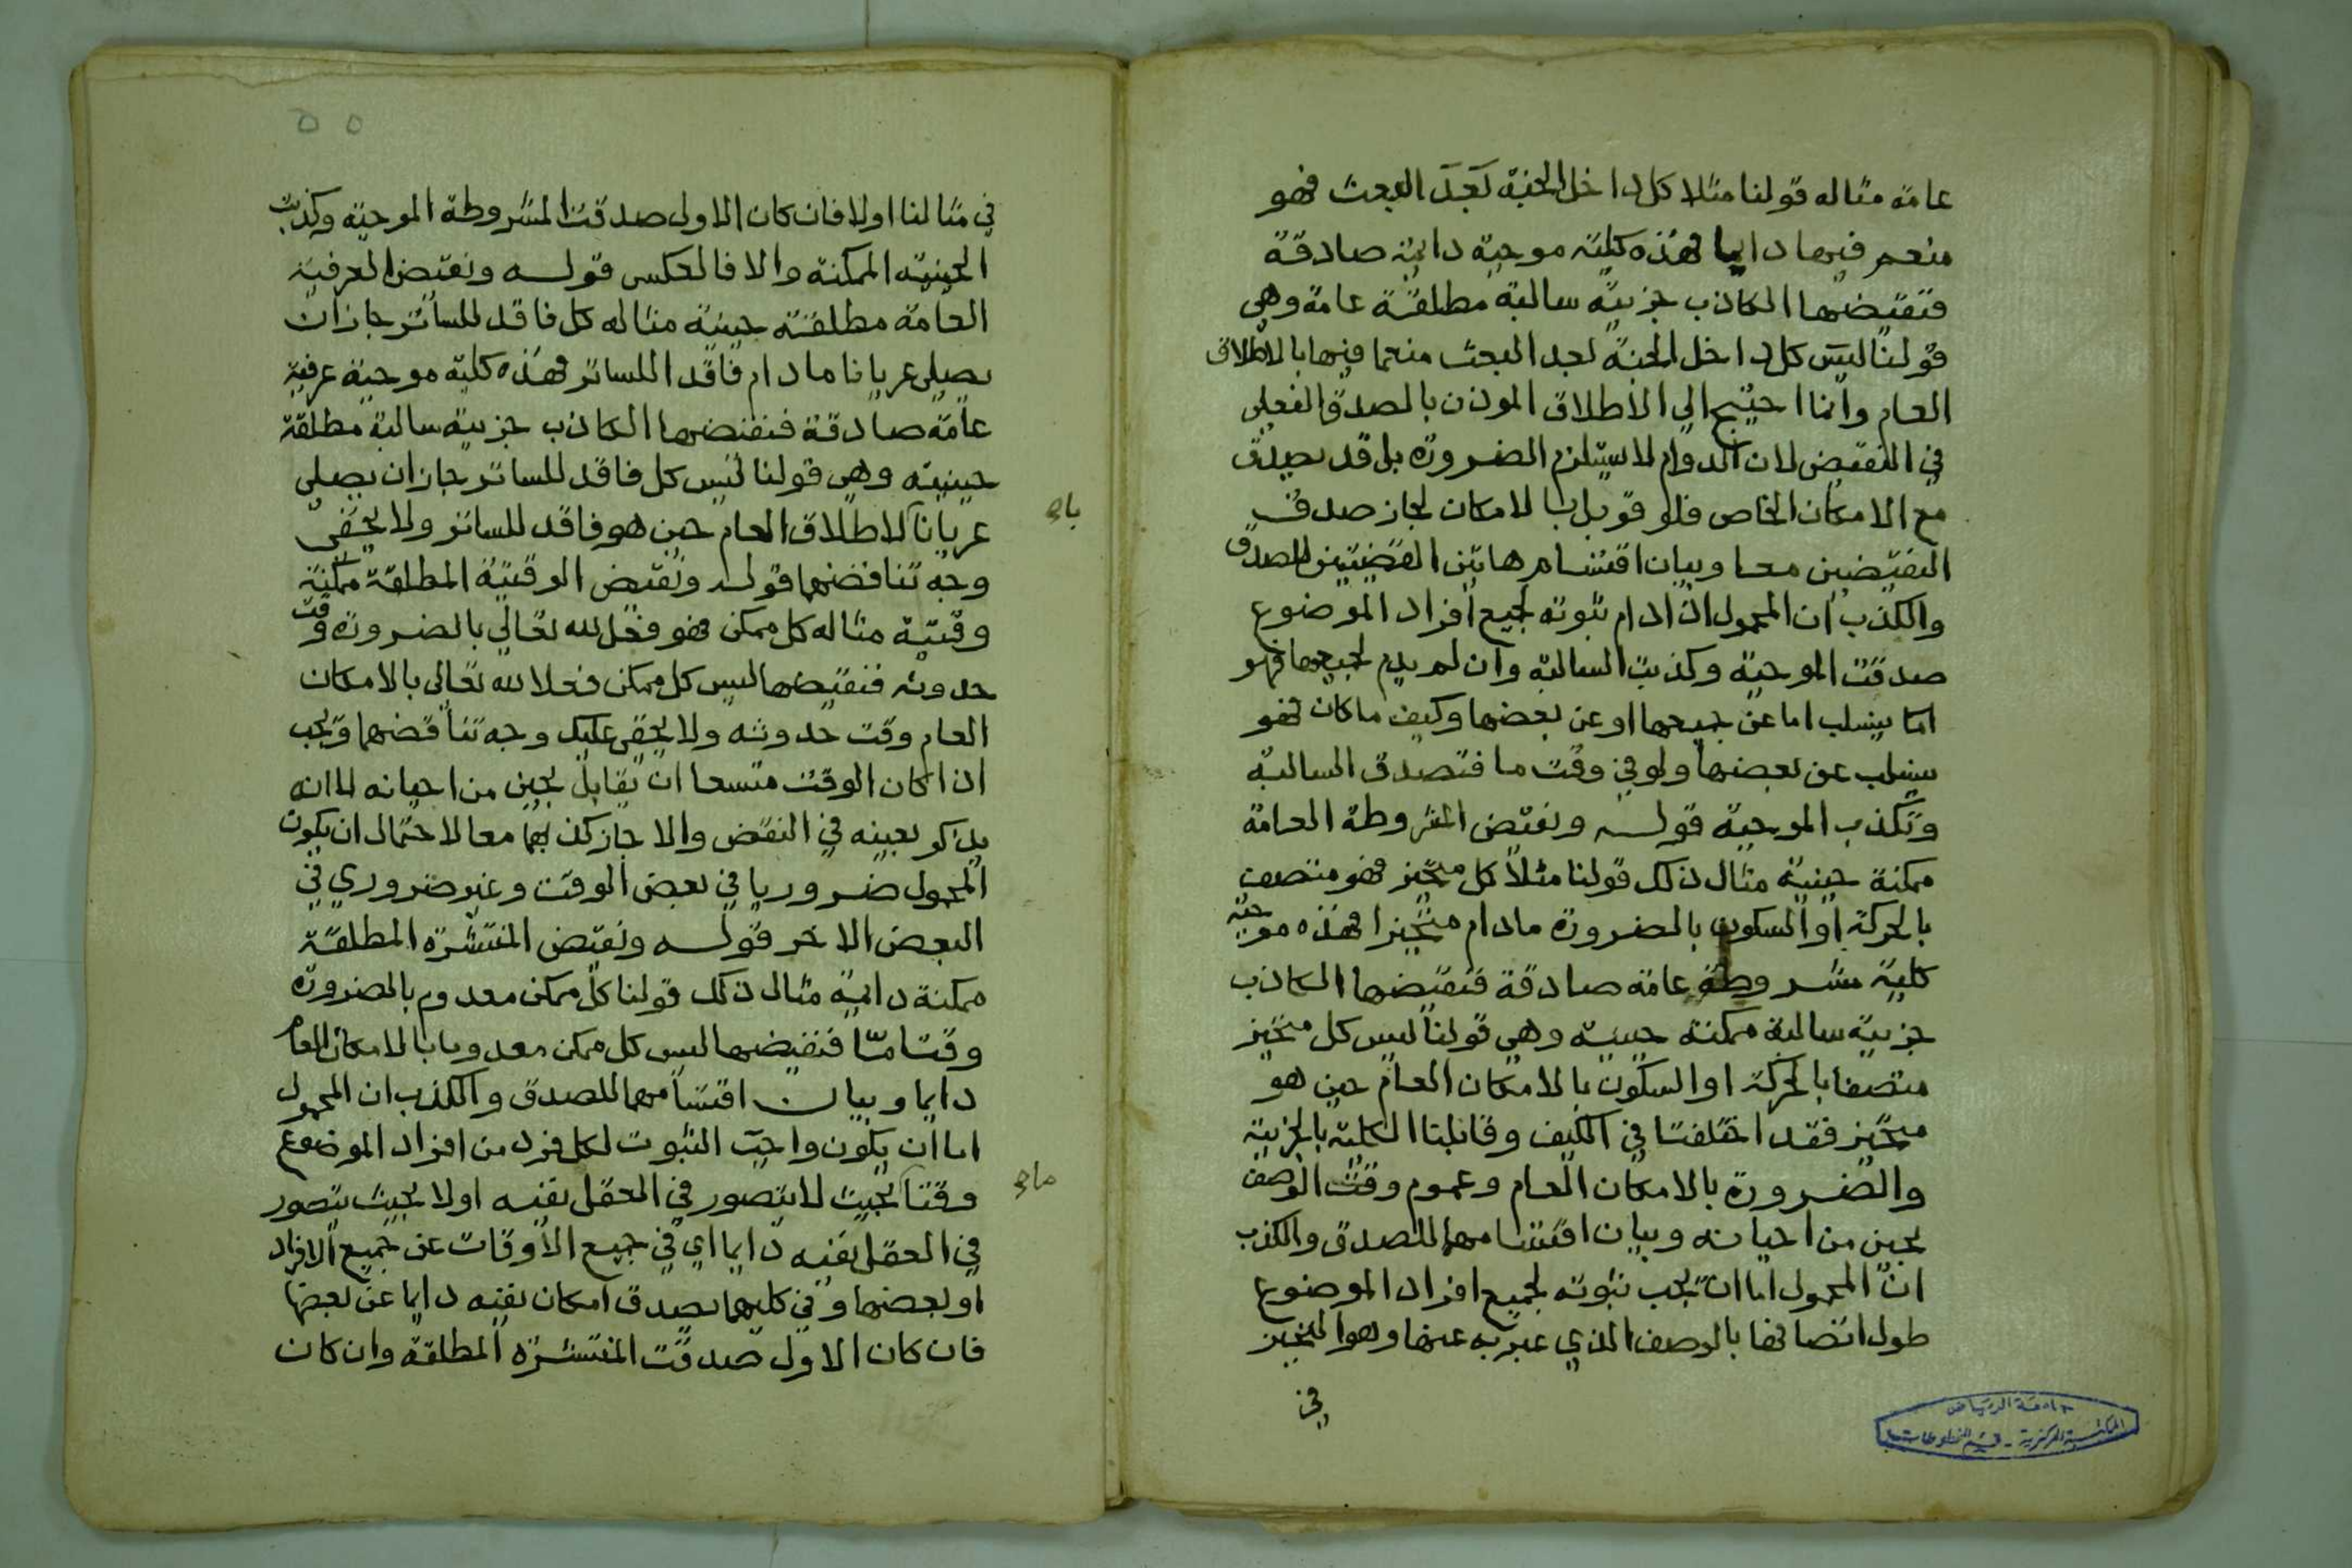 عامة مثاله قولنا مثلا كل داخل الجنة بعد البعث فهو
منعم فيها دايما فهذه كلية موجبة دايمة صادقة
فنقيضها الكاذب جزيية سالبة مطلقة عامة وهي
قولنا ليس كل داخل الجنة بعد البعث منعما فيها بالاطلاق
العام وانما احتيج الي الاطلاق الموذن بالصدق الفعلي
في النقيض لان الدوام لا يستلزم الضرورة بل قد يصدق
مع الامكان الخاص فلو قوبل بالامكان لجاز صدق
النقيضين معا وبيان اقتسام هاتين القضيتين للصدق
والكذب ان المحمول ان دام ثبوته لجميع افراد الموضوع
صدقت الموجبة وكذبت السالبة وان لم يدم لجميعها فهو
اما ينسلب اما عن جميعها او عن بعضها وكيف ما كان فهو
ينسلب عن بعضها ولو في وقت ما فتصدق السالبة
وتكذب الموجبة قوله ونقيض المشروطة العامة
ممكنة حينية مثال ذلك قولنا مثلا كل متحيز فهو متصف
بالحركة او السكون بالضرورة مادام متحيزا فهذه موجبة
كلية مشروطة عامة صادقة فنقيضها الكاذب
جزيية سالبة ممكنة حينية وهي قولنا ليس كل متحيز
متصفا بالحركة او السكون بالامكان العام حين هو
متحيز فقد اختلفتا في الكيف وقابلنا الكلية بالجزيية
والضرورة بالامكان العام وعموم وقت الوصف
بحين من احيانه وبيان اقتسامهما للصدق والكذب
ان المحمول اما ان يجب ثبوته لجميع افراد الموضوع
طول اتصافها بالوصف الذي عبر به عنها وهو المتحيز
في
جامعة الرياض
المكتبة المركزية - قسم المخطوطات
٥٥
في مثالنا اولا فان كان الاول صدقت المشروطة الموجبة وكذبت
الحينية الممكنة والا فالعكس قوله ونقيض العرفية
العامة مطلقة حينية مثاله كل فاقد للساتر جاز ان
يصلي عريانا ما دام فاقدا للساتر فهذه كلية موجبة عرفية
عامة صادقة فنقيضها الكاذب جزيية سالبة مطلقة
حينية وهي قولنا ليس كل فاقد للساتر جاز ان يصلي
عريانا بالاطلاق العام حين هو فاقد للساتر ولا يخفى
وجه تناقضهما قوله ونقيض الوقتية المطلقة ممكنة
وقتية مثاله كل ممكن فهو فعل لله تعالي بالضرورة وقت
حدوثه فنقيضها ليس كل ممكن فعلا لله تعالى بالامكان
العام وقت حدوثه ولا يخفى عليك وجه تناقضهما ويجب
اذا كان الوقت متسعا ان يقابل بحين من احيانه لا انه
يذكر بعينه في النقيض والا جاز كذبهما معا لاحتمال ان يكون
المحمول ضروريا في بعض الوقت وغير ضروري في
البعض الاخر قوله ونقيض المنتشرة المطلقة
ممكنة دايمة مثال ذلك قولنا كل ممكن معدوم بالضرورة
وقتا مّا فنقيضها ليس كل ممكن معدوما بالامكان العام
دايما وبيان اقتسامهما للصدق والكذب ان المحمول
اما ان يكون واجب الثبوت لكل فرد من افراد الموضوع
وقتا بحيث لا يتصور في العقل نفيه او لا بحيث يتصور
في العقل نفيه دايما اي في جميع الاوقات عن جميع الافراد
او بعضها وفي كليهما يصدق امكان نفيه دايما عن بعضها
فان كان الاول صدقت المنتشرة المطلقة وان كان